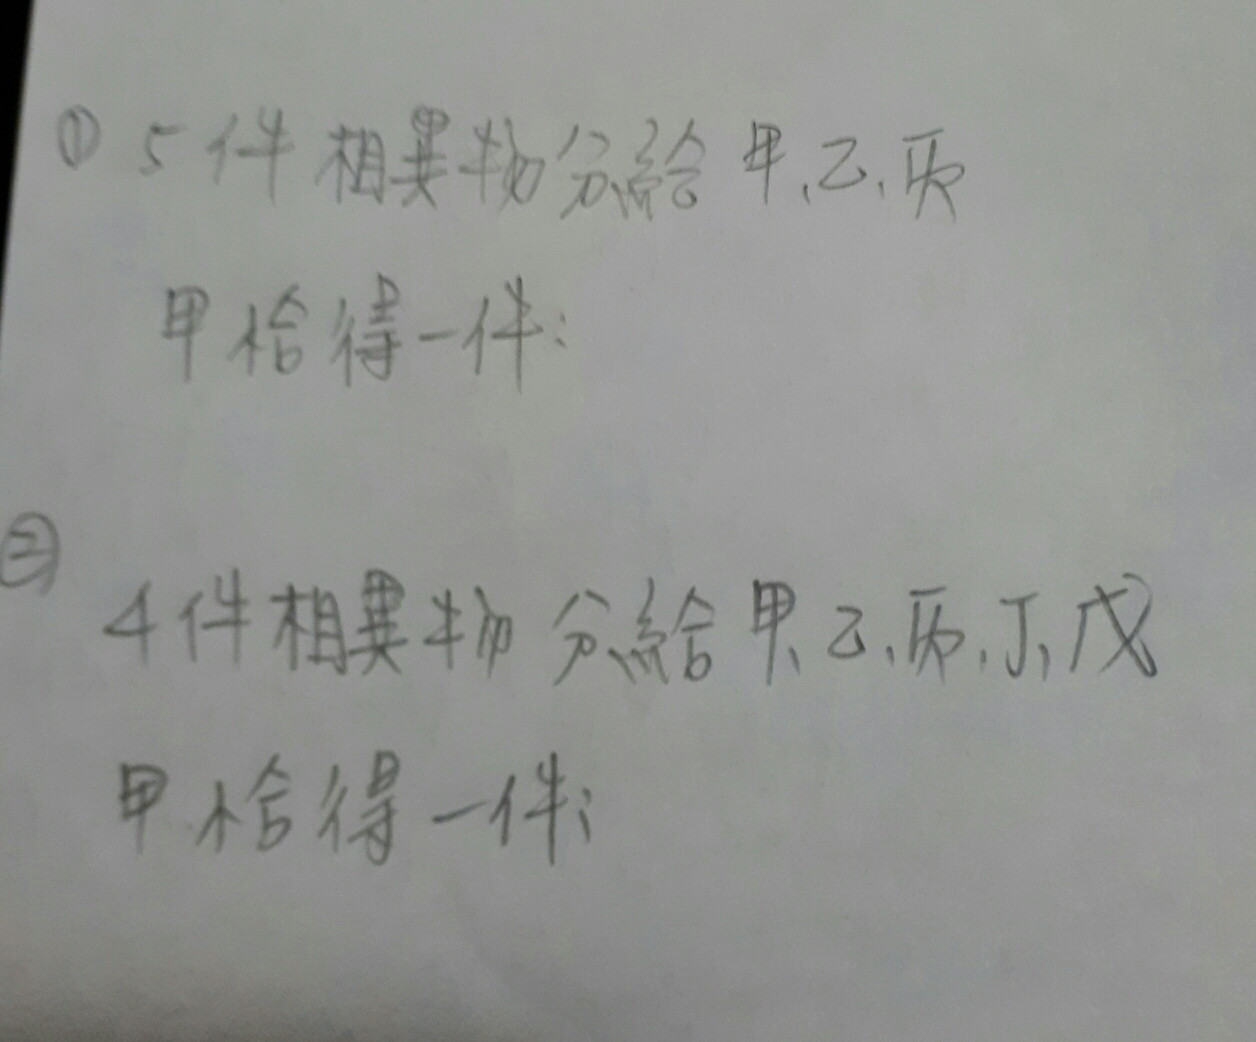 ① 5件相異物分給甲、乙、丙
甲恰得一件:
②
4件相異物分給甲、乙、丙、丁、戊
甲恰得一件: